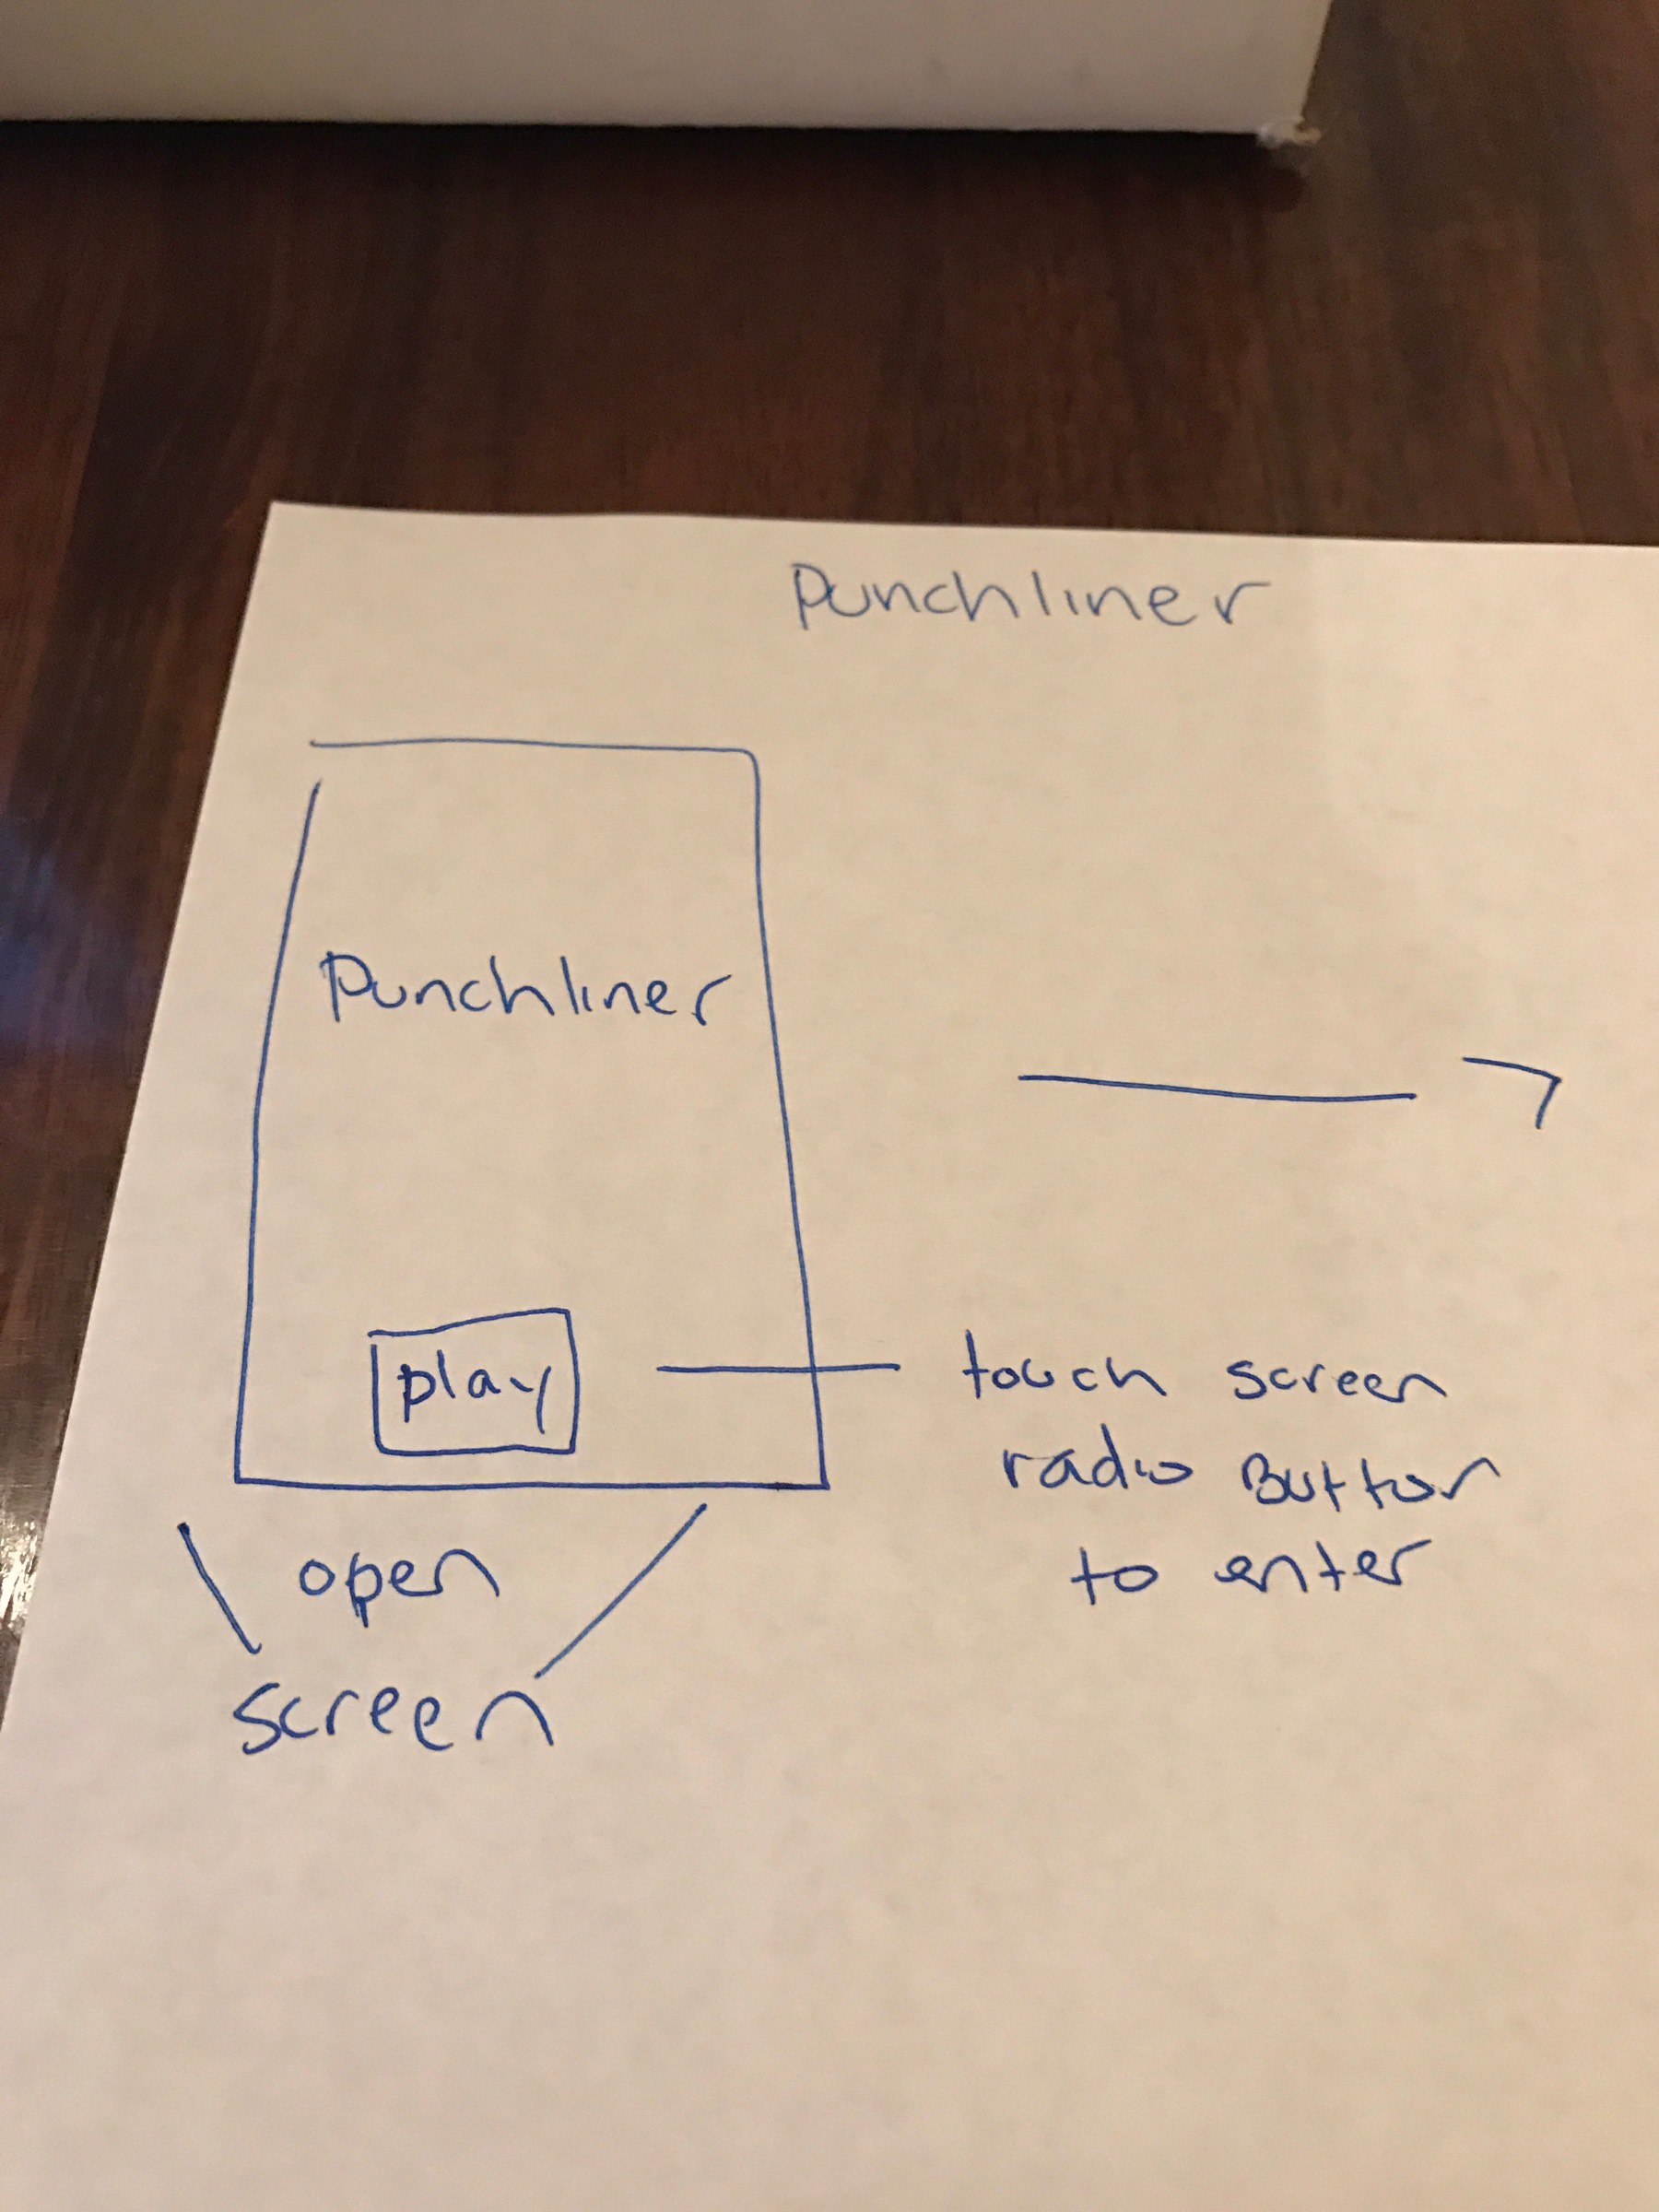 Punchliner
Punchliner
play
touch screen
radio Button
to enter
open
screen